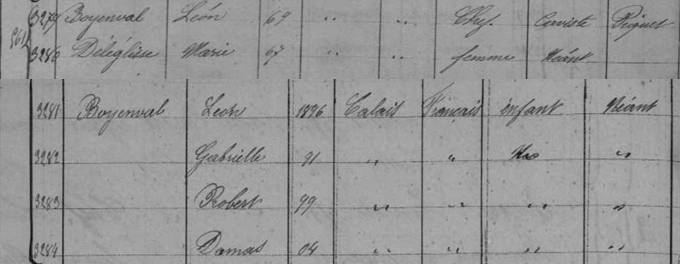 3279 Boyenval Léon 69 " " Chef. Ouviste Piguet
3280 Déléglise Marie 67 " " femme Néant
3281 Boyenval Léon 1896 Calais Français enfant Néant
3282 Gabrielle 91 " " "
3283 Robert 99 " " " "
3284 Damas 04 " " " "